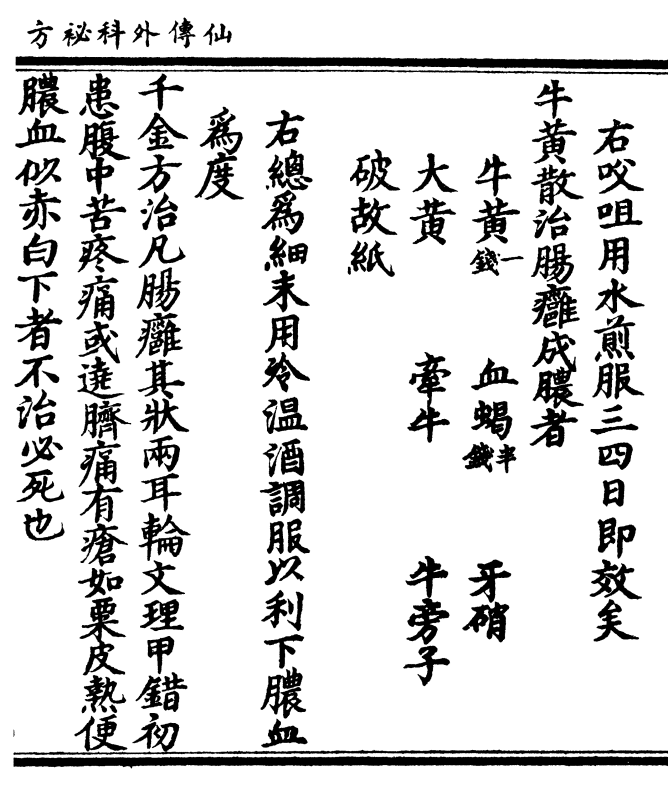 仙傳外科祕方
右㕮咀用水煎服三四日即效矣
牛黄散治腸癰成膿者
牛黄一錢　血蝎半錢　牙硝
大黄　牽牛　牛旁子
破故紙
右總爲細末用冷温酒調服以利下膿血
爲度
千金方治凡腸癰其狀兩耳輪文理甲錯初
患腹中苦疼痛或遶臍痛有瘡如粟皮熱便
膿血似赤白下者不治必死也